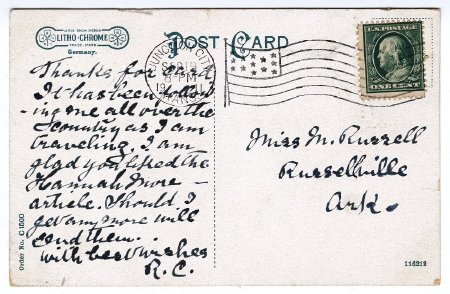 LITHO-CHROME
TRADE MARK
Germany.
POST CARD
JUNCTION CITY
KANSAS
U.S. POSTAGE
ONE CENT
Thanks for card
It has been follow
-ing me all over the
country as I am
traveling. I am
glad you liked the
Hannah More -
article. Should I
get any more will
send them..
with best wishes
R.C.
Miss M. Russell
Russellville
Ark.
Order No. C 1500
116212